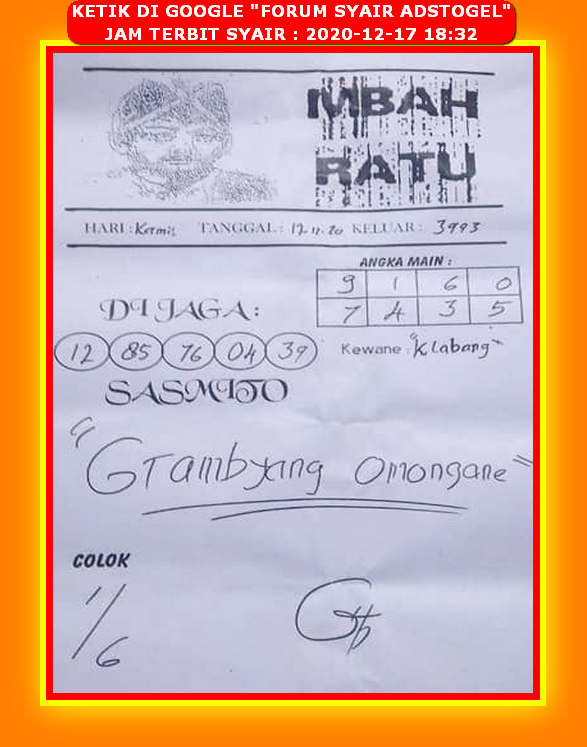 KETIK DI GOOGLE "FORUM SYAIR ADSTOGEL"
JAM TERBIT SYAIR : 2020-12-17 18:32
MBAH
RATU
HARI : Kermis TANGGAL : 17.12.20 KELUAR : 3993
ANGKA MAIN :
9 1 6 0
7 4 3 5
DI JAGA :
12 85 76 04 39
Kewane : "Klabang"
SASMITO
"Grambyang Omongane"
COLOK
1/6